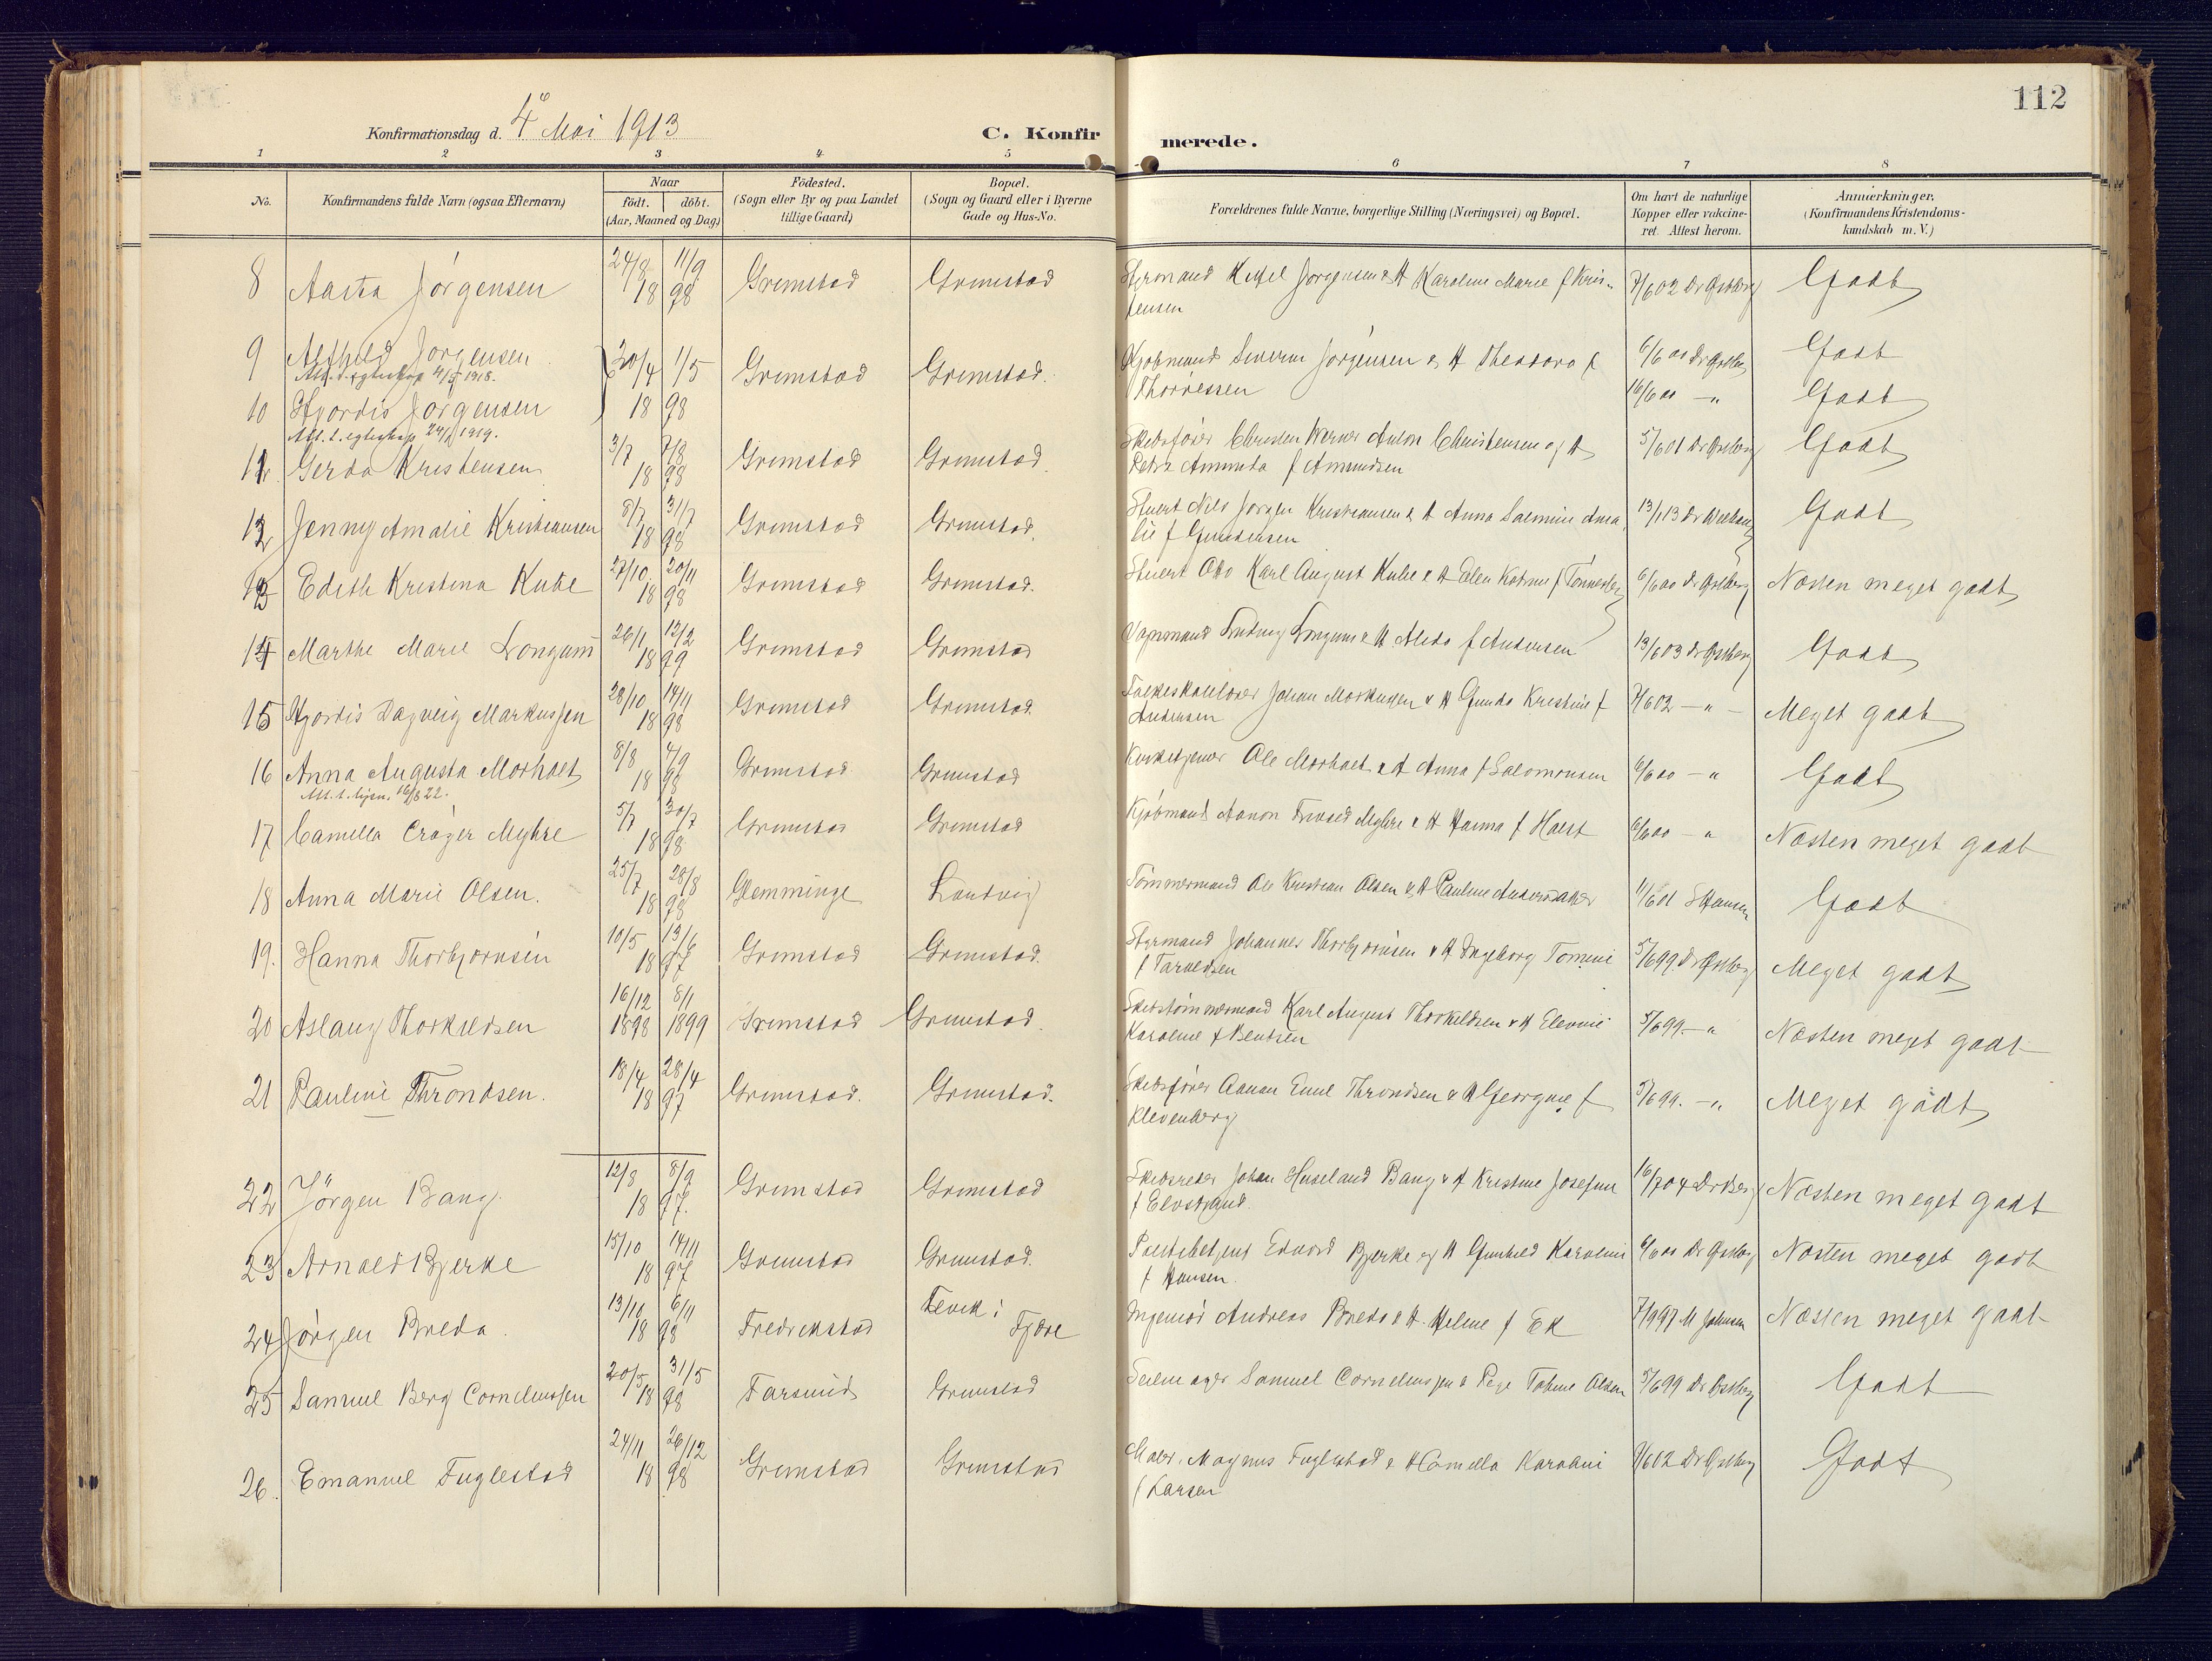 112
Konfirmationsdag d. 4de Mai 1913
C. Konfirmerede.
1 2 3 4 5 6 7 8
No.
Konfirmandens fulde Navn (ogsaa Efternavn)
Naar
födt. döbt.
(Aar, Maaned og Dag)
Födested.
(Sogn eller By og paa Landet
tillige Gaard)
Bopæl.
(Sogn og Gaard eller i Byerne
Gade og Hus-No.
Forældrenes fulde Navne, borgerlige Stilling (Næringsvei) og Bopæl.
Om havt de naturlige
Kopper eller vakcine-
ret. Attest herom.
Anmærkninger.
(Konfirmandens Kristendoms-
kundskab m. V.)
8 Aasta Jörgensen 24/8 11/9 1898 Grimstad Grimstad Styrmand Ketil Jörgensen & H Karoline Marie f Kris-
tensen 7/6 02 Dr Østberg Godt
9 Alfhild Jorgensen 20/4 1/5 Grimstad Grimstad. Kjøbmand Severin Jorgensen & H Theodora f
Thorvessen 6/6 00 Dr Østberg Godt
Att. t. egteskap 1918.
10 Hjordis Jorgensen 18 98 16/6 00 — " Godt
Att. t. egteskap 1919.
11 Gerda Kristensen 3/7 7/8 1898 Grimstad Grimstad. Skibsfører Christen Werner Anton Christensen og H
Petra Amunda f Amundsen 5/6 01 Dr Østberg Godt
12 Jenny Amalie Kristiansen 8/7 31/7 1898 Grimstad Grimstad. Stuert Nils Jorgen Kristiansen & H Anna Salmine Ama
lie f Gundersen 13/1 13 Godt
13 Edith Kristina Kube 27/10 20/11 1898 Grimstad Grimstad. Stuert Otto Karl August Kube & H Elen Katrine f Tønnesberg 6/6 00 Dr Østberg Næsten meget godt
14 Marthe Marie Longum 26/1 12/2 1899 Grimstad Grimstad Vognmand Ludvig Longum & H Alida f Andersen 13/6 03 Dr Østberg Godt
15 Hjordis Dagveig Markussen 28/10 14/11 1898 Grimstad Grimstad. Folkeskolelærer Johan Markussen & H Gunda Kristine f
Andersen 7/6 02 — " — Meget godt
16 Anna Augusta Morholt 8/8 4/9 1898 Grimstad Grimstad Kirketjener Ole Morholt & H Anna f Salomonsen 6/6 00 — " Godt
Att. t. lysn. 16/8 22.
17 Camilla Cröger Myhre 5/7 30/7 1898 Grimstad Grimstad Kjöbmand Aanon Myhre & H Hanna f Holst 6/6 00 — " Næsten meget godt
18 Anna Marie Olsen. 25/7 28/8 1898 Glemminge Landvig Tömmermand Ole Kristian Olsen & H Pauline 11/6 01 Hansen Godt
19. Hanna Thorbjornsen 10/5 13/6 1897 Grimstad Grimstad. Styrmand Johannes Thorbjornsen & H Ingeborg Tomine
f Taraldsen 5/6 99. Dr Østberg Meget godt
20 Aslaug Thorkildsen 16/12 1898 8/1 1899 Grimstad Grimstad. Skibstömmermand Karl August Thorkildsen & H Elevine
Karoline f Bentsen 5/6 99. — " Næsten meget godt
21 Pauline Throndsen. 18/4 28/4 1897 Grimstad. Grimstad. Skibsförer Aanon Emil Throndsen & H Georgine f
Klevenberg 5/6 99. — " Meget godt
22 Jörgen Bang. 12/8 8/9 1897. Grimstad Grimstad Skibsreder Johan Huseland Bang & H Kristine Josefine
f Elvestrand. 16/7 04 Dr Berg Næsten meget godt
23 Arnold Bjerke 15/10 14/11 1897 Grimstad Grimstad. Politibetjent Edvard Bjerke og H Gunhild Karoline
f Hansen. 6/6 00 Dr Østberg Næsten meget godt
24 Jörgen Breda. 13/10 6/11 1898 Fredrikstad Fevik i
Fjære Ingeniør Andreas Breda & H. Helene f Ek 7/9 97 M Johnsen Næsten meget godt
25 Samuel Berg Corneliussen 20/5 31/5 1898 Farsund Grimstad Seilmager Samuel Corneliussen & Pige Tobine Olsen 5/6 99 Dr Østberg Godt
26. Emanuel Fuglestad 24/11 26/12 1898 Grimstad Grimstad Maler Magnus Fuglestad & H Camilla
f Larsen 9/6 02 Dr Østberg Godt